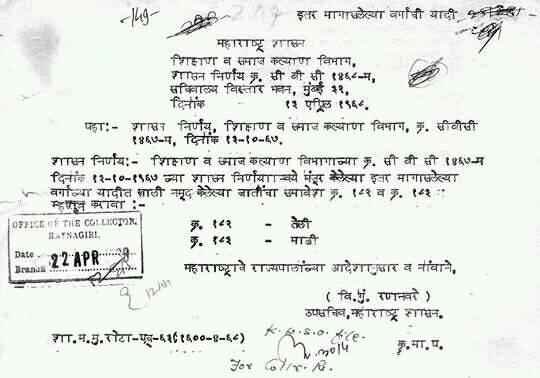 इतर मागासलेल्या वर्गाची यादी
महाराष्ट्र शासन
शिक्षण व समाज कल्याण विभाग,
शासन निर्णय क्र. सी बी सी १४६८-म,
सचिवालय विस्तार भवन, मुंबई ३२.
दिनांक १२ एप्रिल १९६८.
पहा:- शासन निर्णय, शिक्षण व समाज कल्याण विभाग, क्र. सीबीसी
१४६७-म, दिनांक १३-१०-६७.
शासन निर्णय:- शिक्षण व समाज कल्याण विभागाच्या क्र. सी बी सी १४६७-म
दिनांक १३-१०-१९६७ च्या शासन निर्णयान्वये मंजूर केलेल्या इतर मागासलेल्या
वर्गाच्या यादीत खाली नमूद केलेल्या जातींचा समावेश क्र. १८२ व क्र. १८३
म्हणून करावा :-
क्र. १८२ - तेली
क्र. १८३ - माळी
OFFICE OF THE COLLECTOR,
RATNAGIRI.
Date 22 APR
Branch
महाराष्ट्राचे राज्यपालांच्या आदेशानुसार व नांवाने,
( वि.मुं. रणनवरे )
उपसचिव, महाराष्ट्र शासन.
शा.म.मु.रोटा-एच-६३(१६००-४-६८)
कृ.मा.प.
For